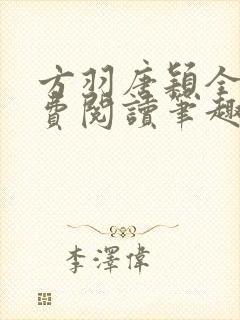 方羽唐穎全
費閱讀筆趣
李澤偉